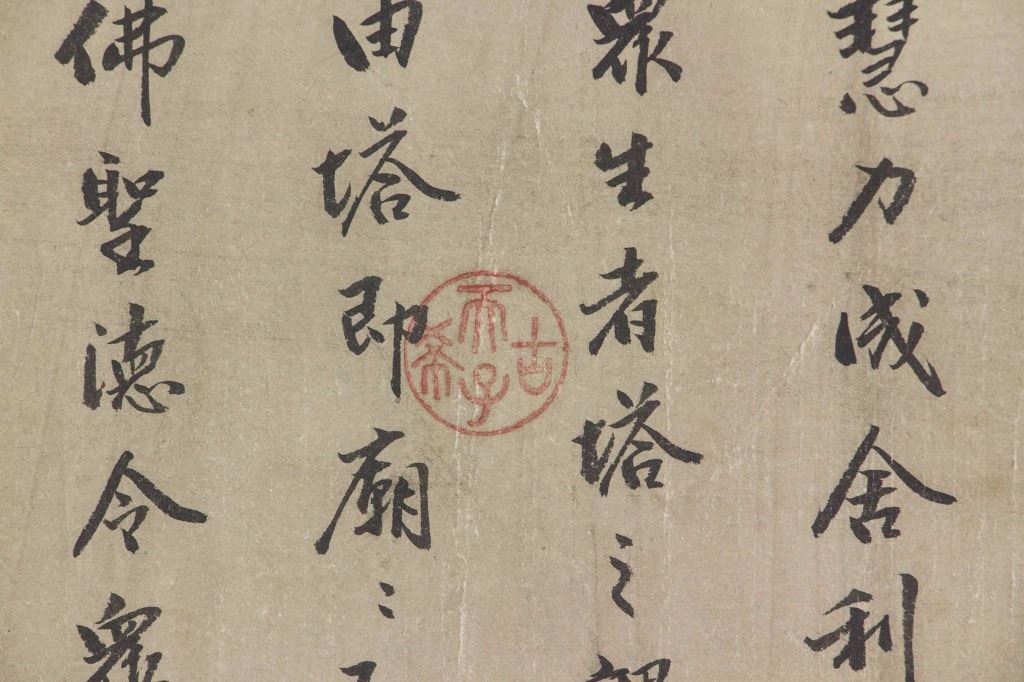 慧力成舍利
眾生者塔之
由塔即廟〻
佛聖德令眾
古希天子